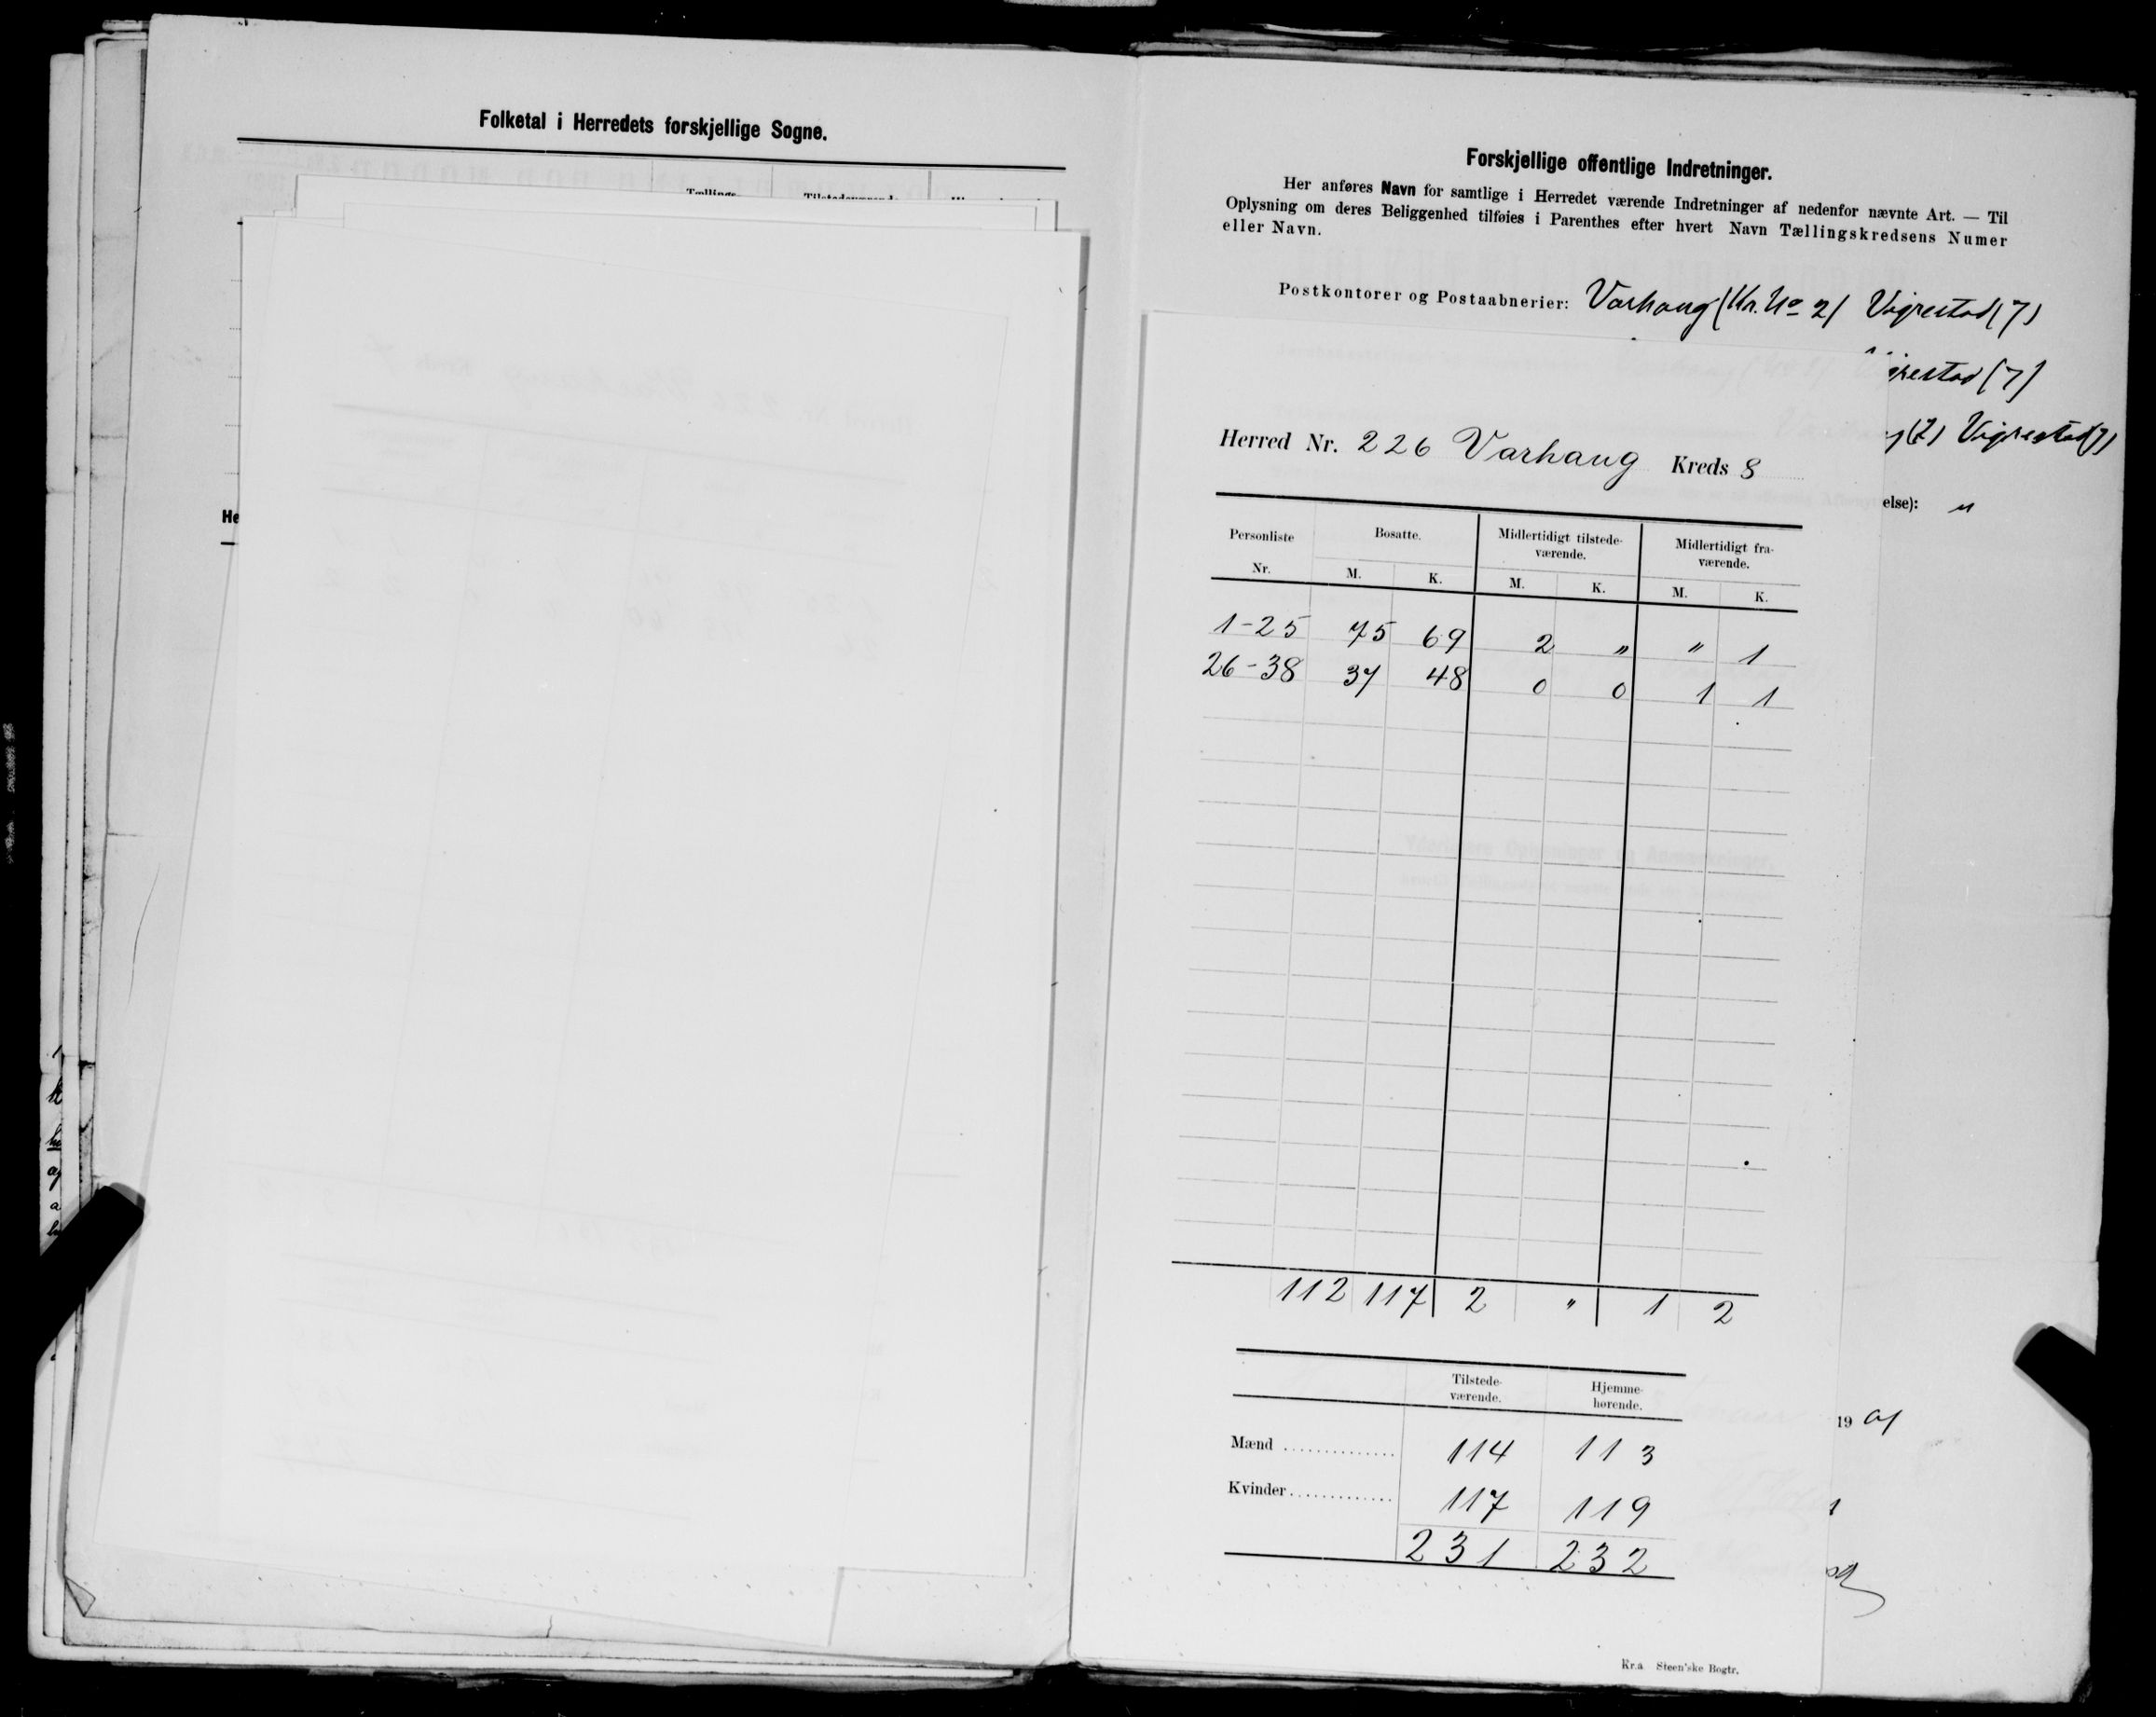 Folketal i Herredets forskjellige Sogne.
He
Forskjellige offentlige Indretninger.
Her anføres Navn for samtlige i Herredet værende Indretninger af nedenfor nævnte Art. — Til
Oplysning om deres Beliggenhed tilføies i Parenthes efter hvert Navn Tællingskredsens Numer
eller Navn.
Postkontorer og Postaabnerier: Varhaug (Kr. No 2) Vigrestad (7)
grestad (7)
g (2) Vigrestad (7)
else): "
Herred Nr. 226 Varhaug Kreds 8
Personliste Bosatte. Midlertidigt tilstede- Midlertidigt fra-
værende. værende.
Nr. M. K. M. K. M. K.
1-25 75 69 2 " " 1
26-38 37 48 0 0 1 1
112 117 2 " 1 2
Tilstede- Hjemme-
værende. hørende.
Mænd .............. 114 113
Kvinder ............. 117 119
231 232
19 01
Kr.a Steen'ske Bogtr.